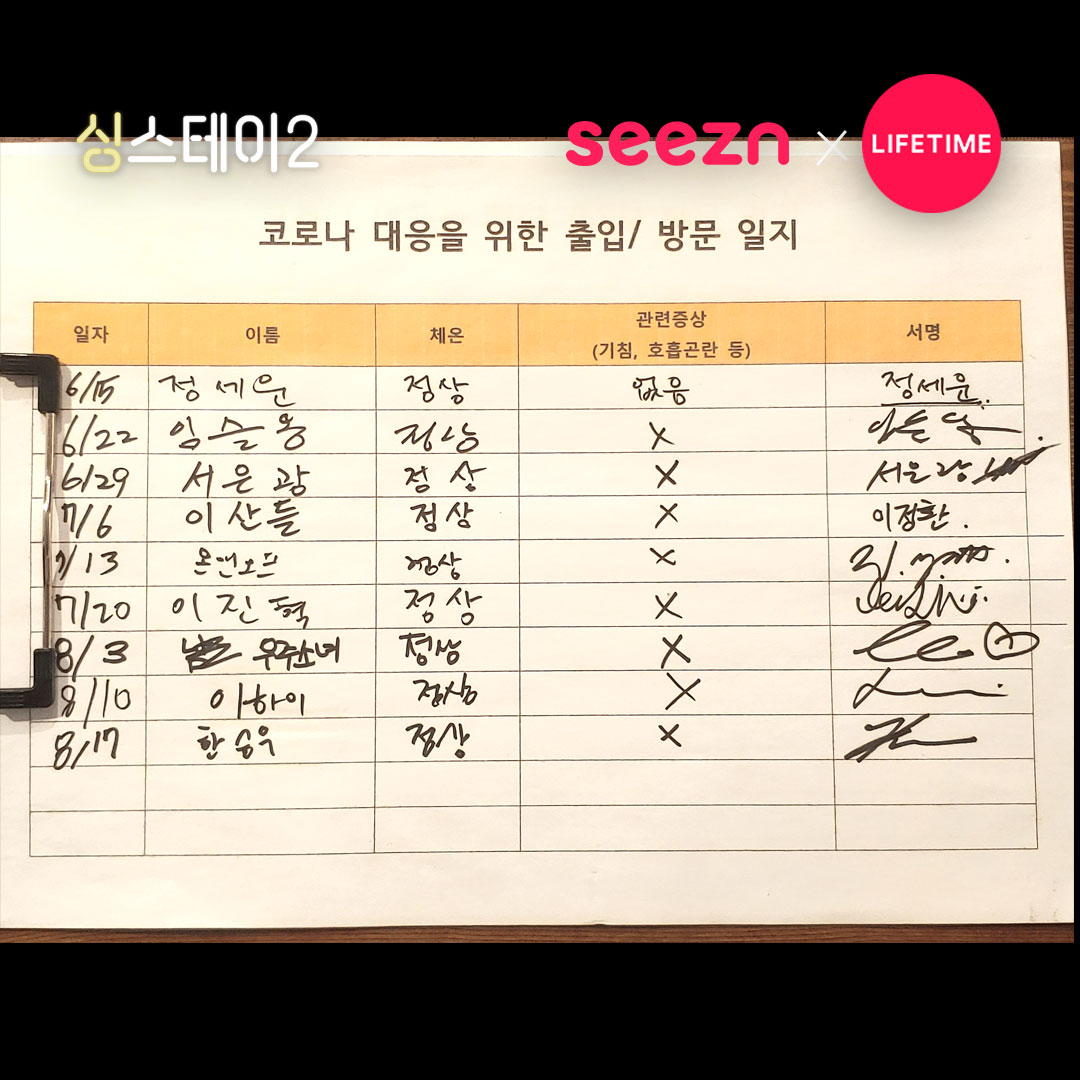 싱스테이2
seezn × LIFETIME
코로나 대응을 위한 출입/ 방문 일지
일자 이름 체온 관련증상 (기침, 호흡곤란 등) 서명
6/15 정세운 정상 없음 정세운
6/22 임슬옹 정상 X
6/29 서은광 정상 X 서은광
7/6 이산들 정상 X 이정환.
7/13 온앤오프 정상 X
7/20 이진혁 정상 X
8/3 우주소녀 정상 X
8/10 이하이 정상 X
8/17 한승우 정상 X